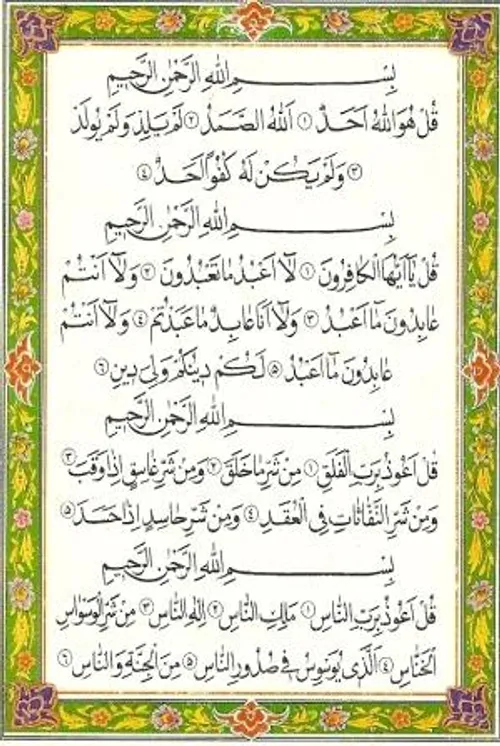 بِسْمِ اللهِ الرَّحْمٰنِ الرَّحِيمِ
قُلْ هُوَ اللهُ اَحَدٌ ١ اَللهُ الصَّمَدُ ٢ لَمْ يَلِدْ وَلَمْ يُولَدْ
٣ وَلَمْ يَكُنْ لَهُ كُفُوًا اَحَدٌ ٤
بِسْمِ اللهِ الرَّحْمٰنِ الرَّحِيمِ
قُلْ يَآ اَيُّهَا الْكَافِرُونَ ١ لَآ اَعْبُدُ مَا تَعْبُدُونَ ٢ وَلَآ اَنْتُمْ
عَابِدُونَ مَآ اَعْبُدُ ٣ وَلَآ اَنَا عَابِدٌ مَا عَبَدْتُمْ ٤ وَلَآ اَنْتُمْ
عَابِدُونَ مَآ اَعْبُدُ ٥ لَكُمْ دِينُكُمْ وَلِيَ دِينِ ٦
بِسْمِ اللهِ الرَّحْمٰنِ الرَّحِيمِ
قُلْ اَعُوذُ بِرَبِّ الْفَلَقِ ١ مِنْ شَرِّ مَا خَلَقَ ٢ وَمِنْ شَرِّ غَاسِقٍ اِذَا وَقَبَ ٣
وَمِنْ شَرِّ النَّفَّاثَاتِ فِي الْعُقَدِ ٤ وَمِنْ شَرِّ حَاسِدٍ اِذَا حَسَدَ ٥
بِسْمِ اللهِ الرَّحْمٰنِ الرَّحِيمِ
قُلْ اَعُوذُ بِرَبِّ النَّاسِ ١ مَلِكِ النَّاسِ ٢ اِلٰهِ النَّاسِ ٣ مِنْ شَرِّ الْوَسْوَاسِ
الْخَنَّاسِ ٤ اَلَّذِي يُوَسْوِسُ فِي صُدُورِ النَّاسِ ٥ مِنَ الْجِنَّةِ وَالنَّاسِ ٦